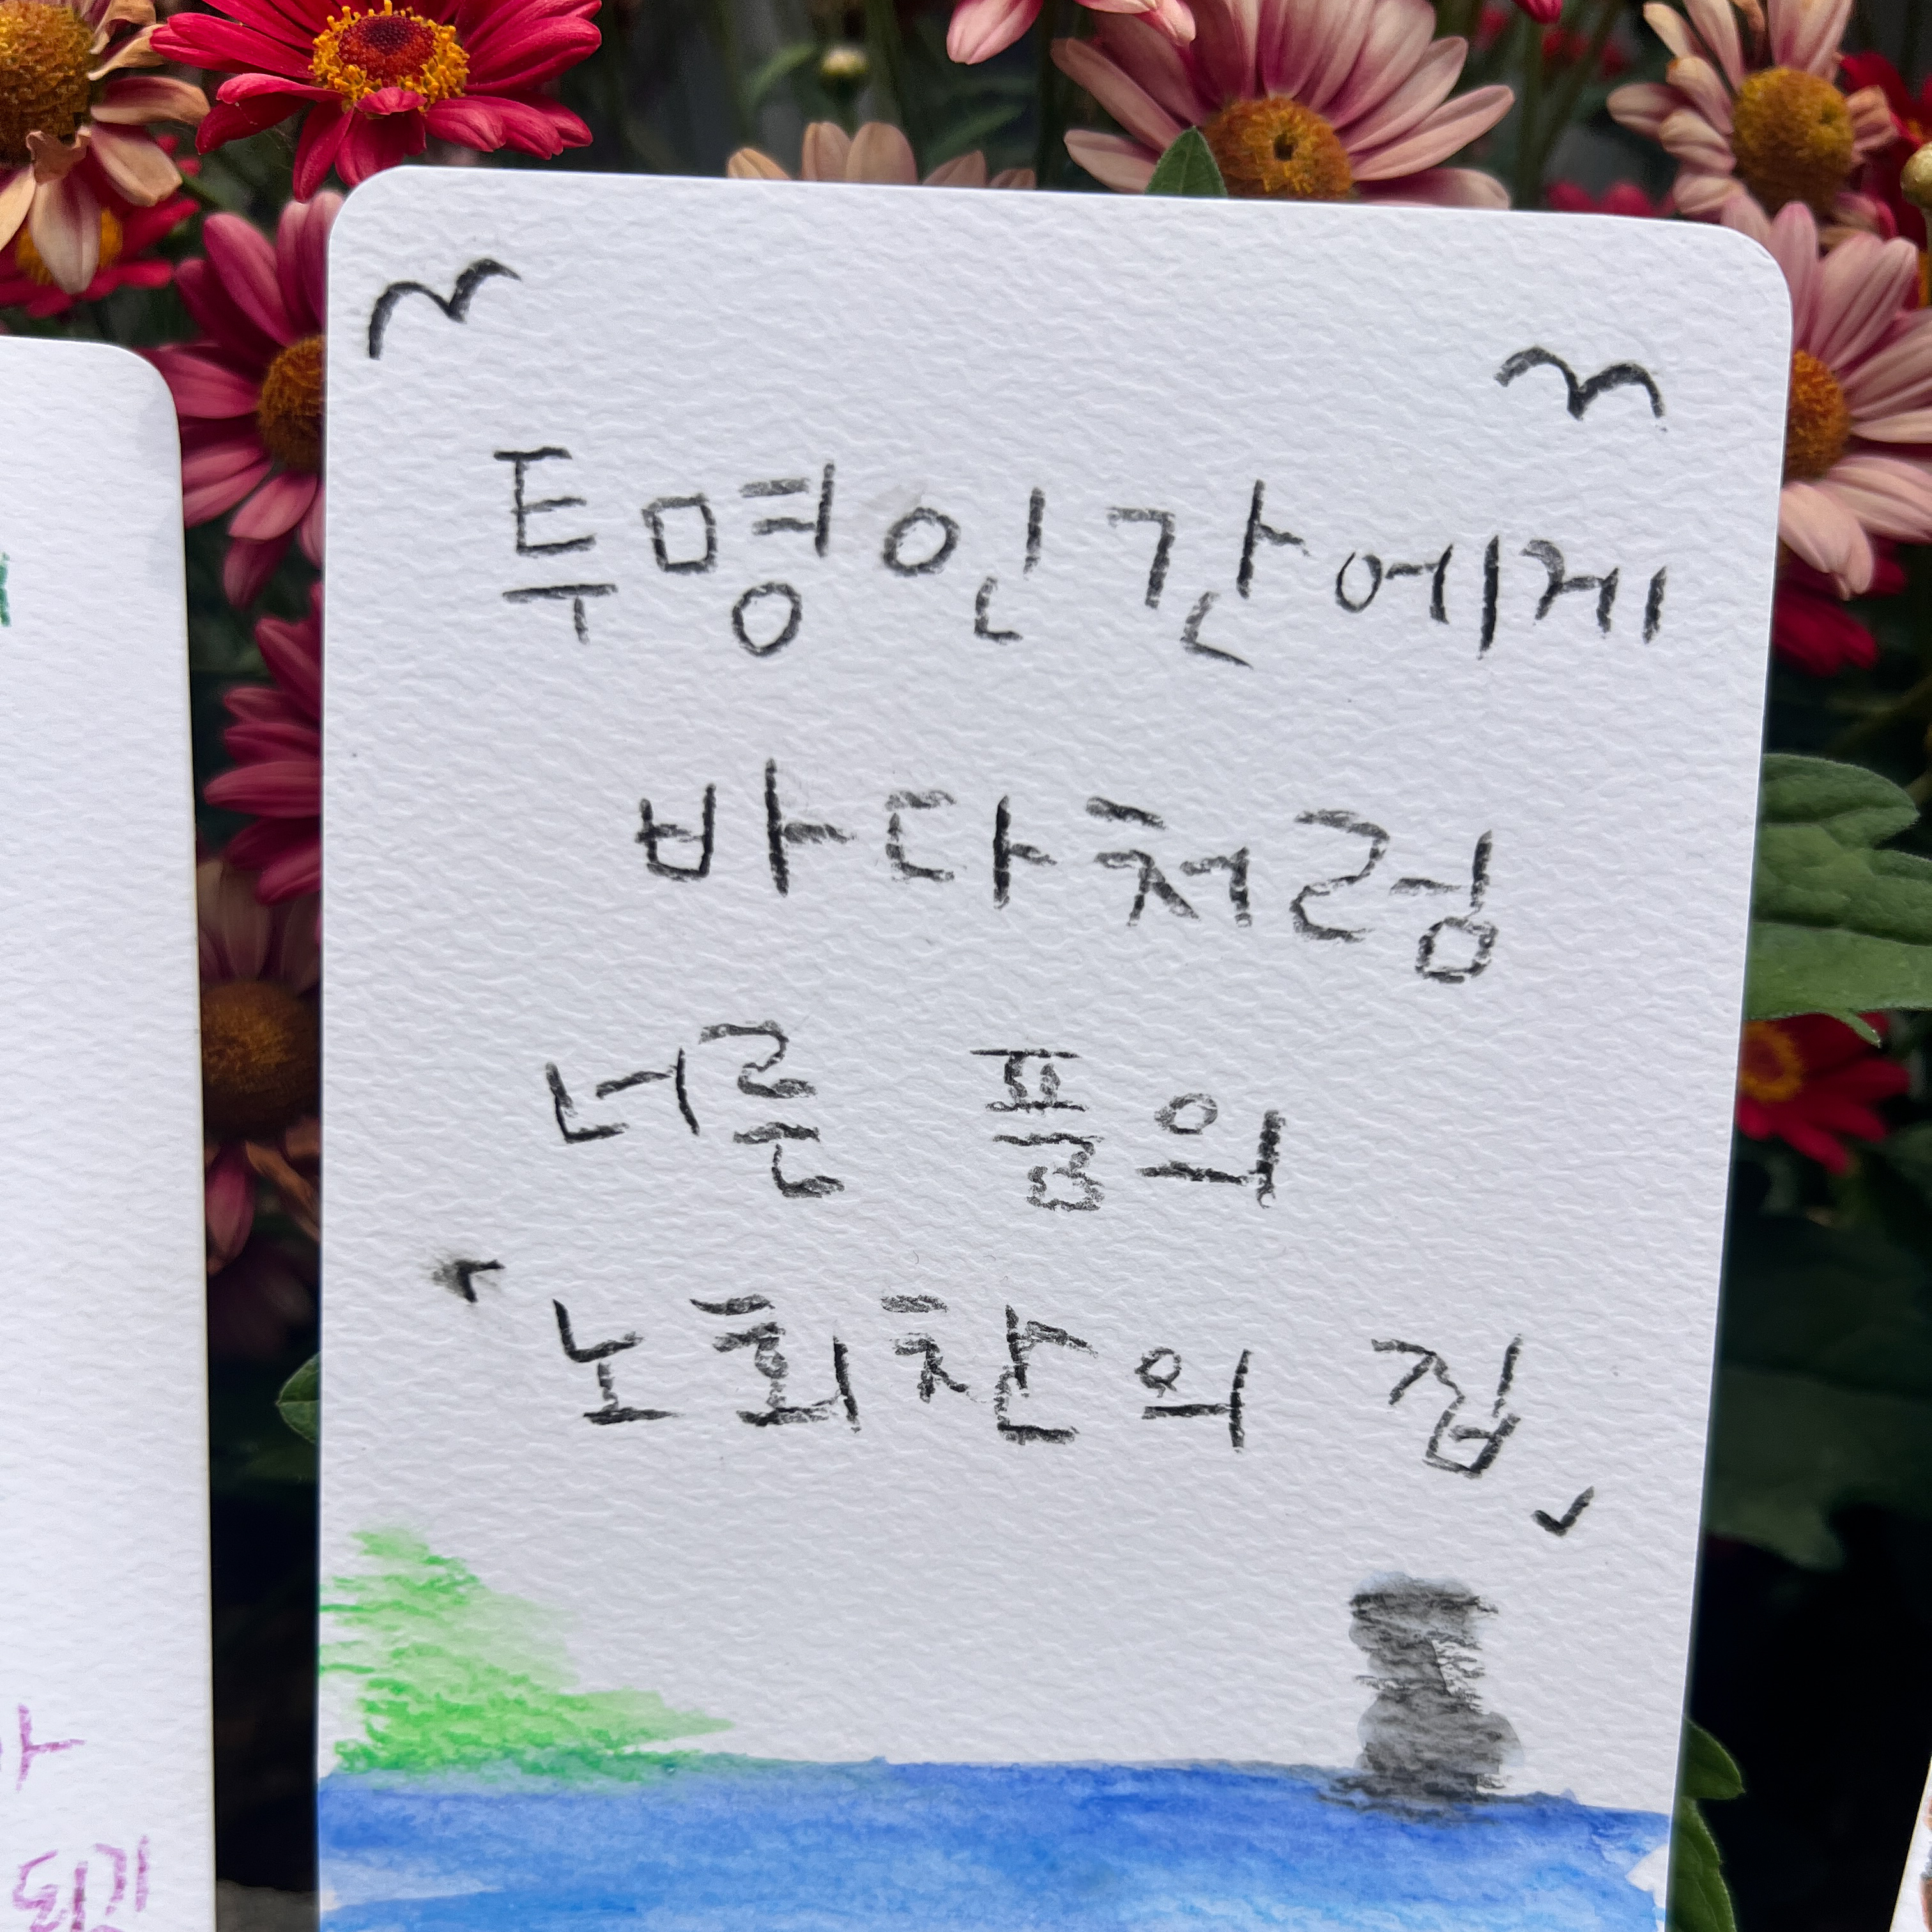 투명인간에게
바다처럼
너른 품의
"노회찬의 집"